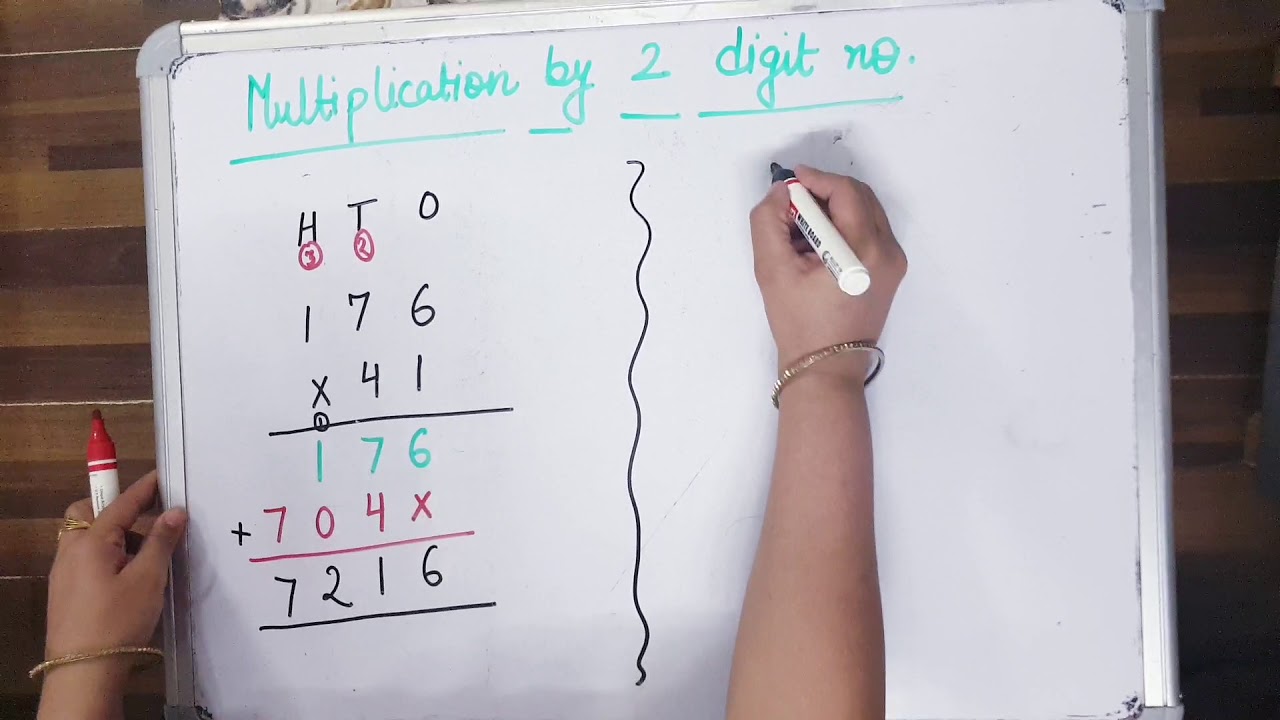 Multiplication by 2 digit no.
H T O
3 2
1 7 6
x 4 1
1
1 7 6
+ 7 0 4 x
7 2 1 6
WHITE BOARD